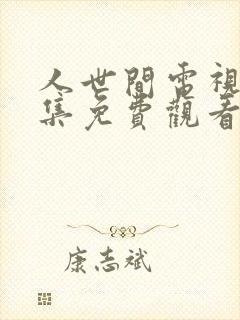 人世間電視
集免費觀看
康志斌